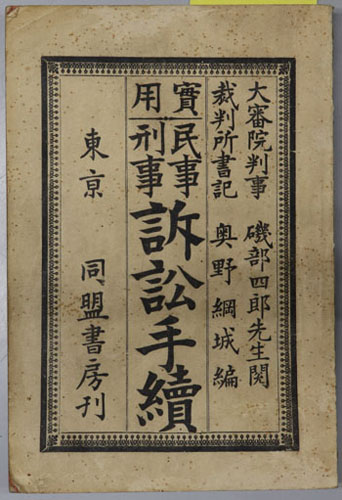 大審院判事 磯部四郎先生閲
裁判所書記 奥野綱城編
實用
民事
刑事
訴訟手續
東京 同盟書房刊